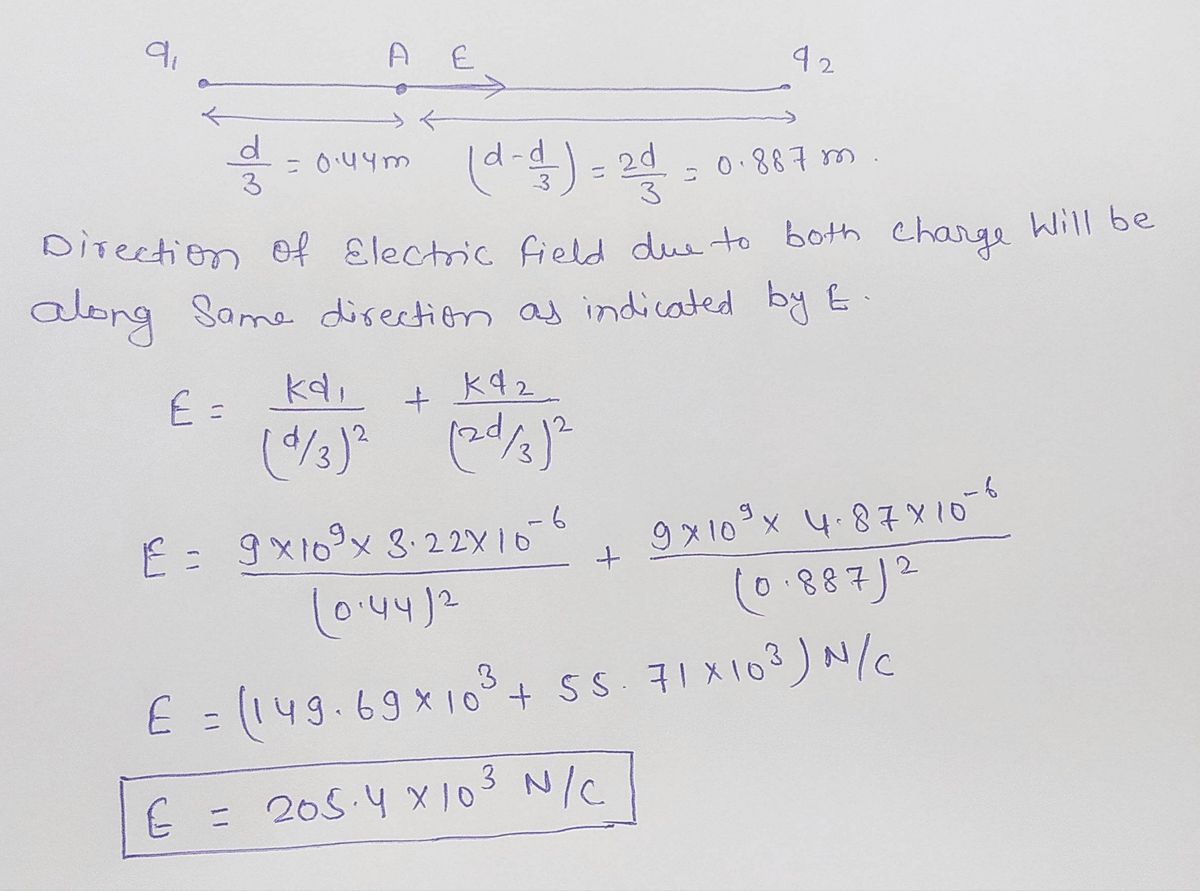 q₁ A E q₂
d/3 = 0.44m (d-d/3) = 2d/3 = 0.887 m.
Direction of Electric field due to both charge will be
along Same direction as indicated by E.
E = kq₁/(d/3)² + kq₂/(2d/3)²
E = 9×10⁹× 3.22×10⁻⁶/(0.44)² + 9×10⁹× 4.87×10⁻⁶/(0.887)²
E = (149.69×10³ + 55.71×10³) N/C
E = 205.4 ×10³ N/C